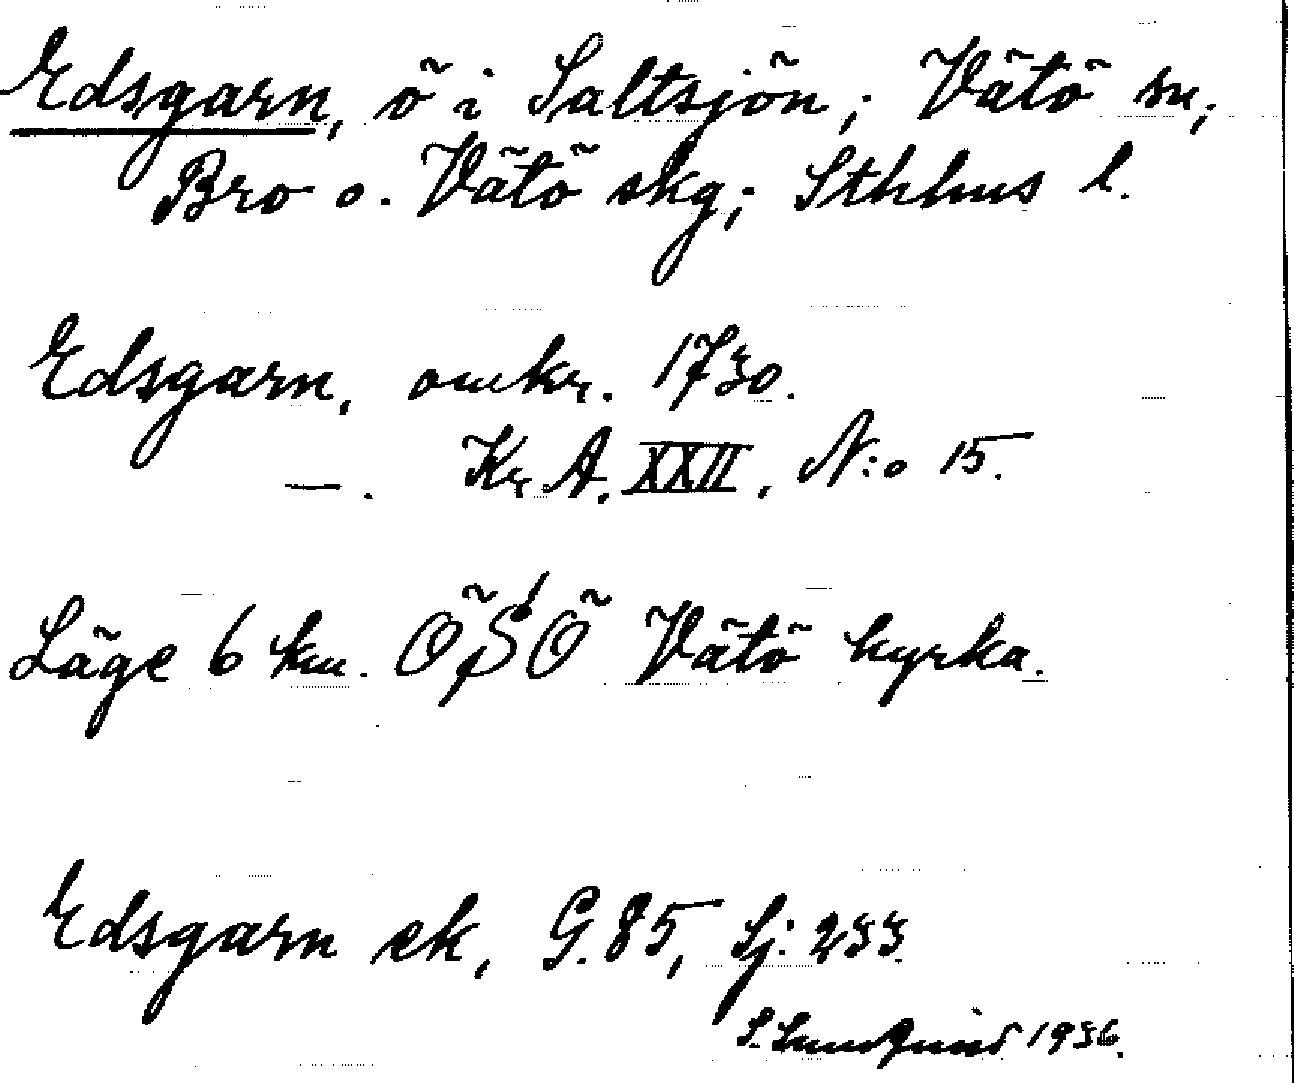 Edsgarn, ö i Saltsjön; Vätö sn;
Bro o. Vätö skg; Sthlms l.
Edsgarn, omkr. 1730.
—. Kr A. XXII, N:o 15.
Läge 6 km. ÖSÖ Vätö kyrka.
Edsgarn ek, G. 85, Sj: 233.
S. 1936.